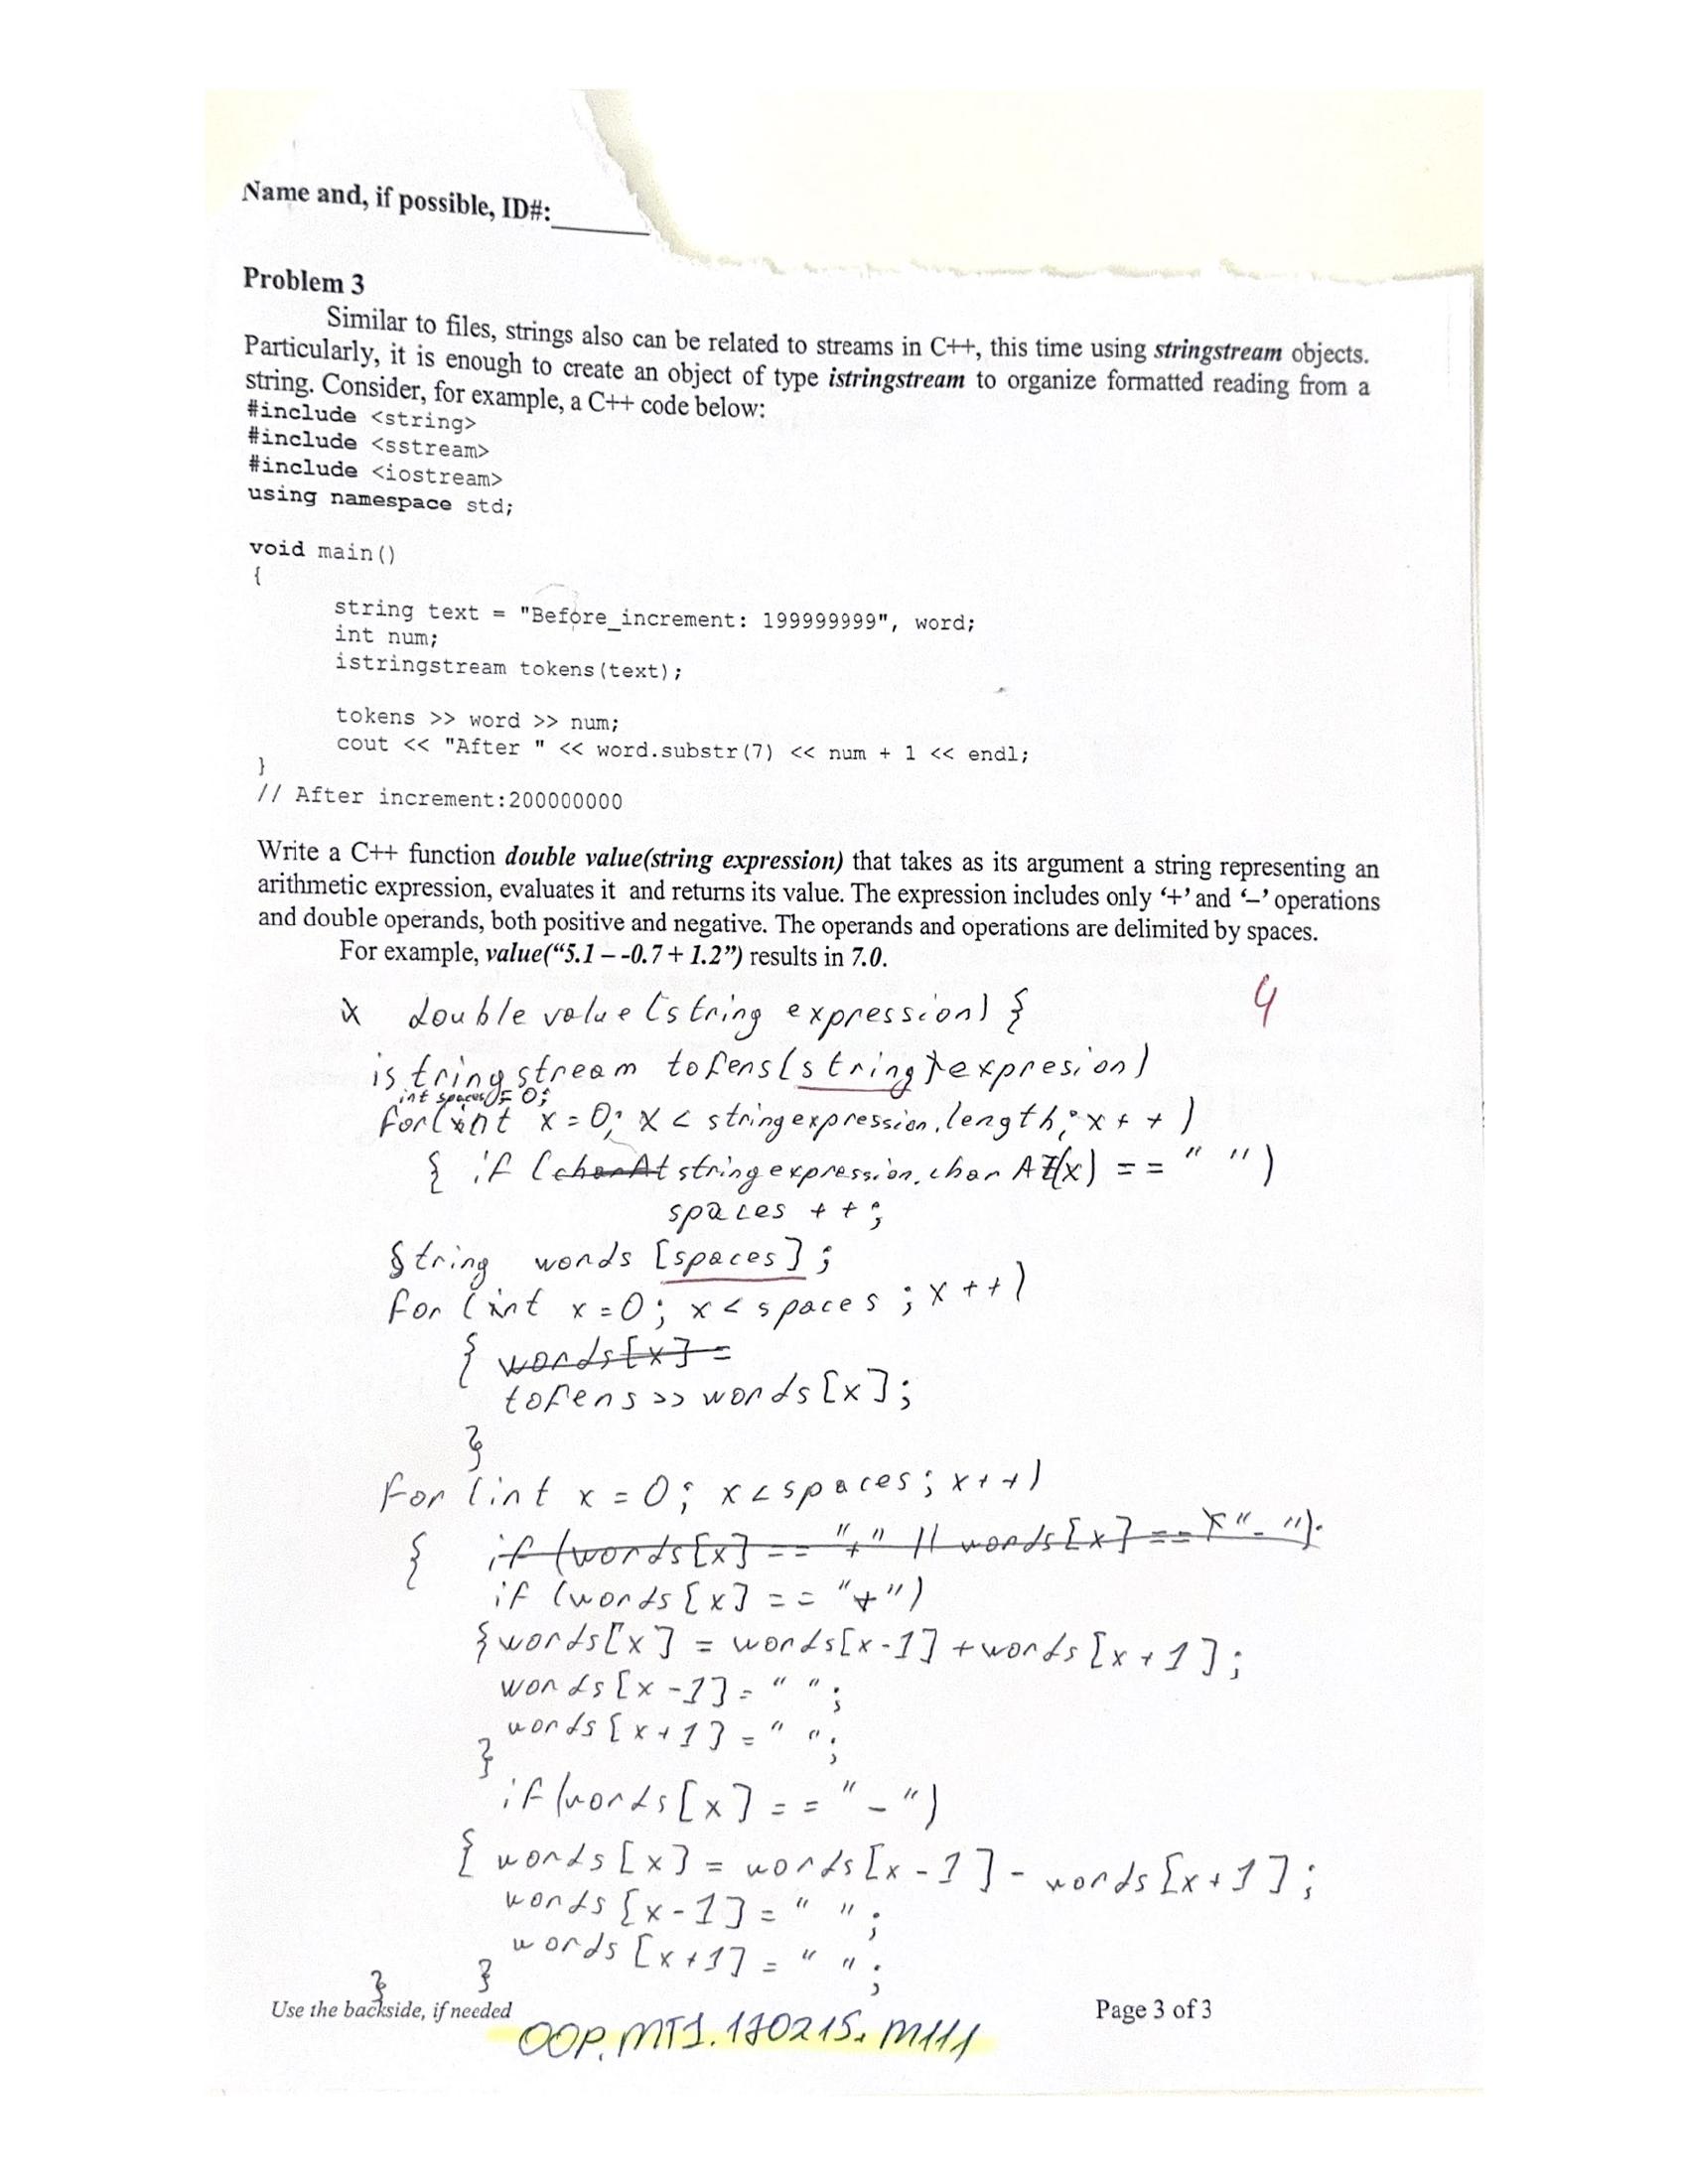 Name and, if possible, ID#:
Problem 3
Similar to files, strings also can be related to streams in C++, this time using stringstream objects.
Particularly, it is enough to create an object of type istringstream to organize formatted reading from a
string. Consider, for example, a C++ code below:
#include <string>
#include <sstream>
#include <iostream>
using namespace std;
void main()
{
string text = "Before_increment: 199999999", word;
int num;
istringstream tokens(text);
tokens >> word >> num;
cout << "After " << word.substr(7) << num + 1 << endl;
}
// After increment:200000000
Write a C++ function double value(string expression) that takes as its argument a string representing an
arithmetic expression, evaluates it and returns its value. The expression includes only ‘+’ and ‘–’ operations
and double operands, both positive and negative. The operands and operations are delimited by spaces.
For example, value(“5.1 – -0.7 + 1.2”) results in 7.0.
4
double value (string expression) {
istringstream tokens(string expresion)
int spaces = 0;
for(int x = 0; x < stringexpression.length; x++)
{ if (charAt stringexpression.charAt(x) == " ")
spaces ++;
String words [spaces];
for (int x=0; x < spaces ; x++)
{ words[x] =
tokens >> words[x];
}
for (int x = 0; x < spaces; x++)
{ if (words[x] == "+" || words[x] == "-").
if (words[x] == "+")
{ words[x] = words[x-1] + words[x+1];
words[x-1] = " ";
words[x+1] = " ";
}
if (words[x] == "-")
{ words[x] = words[x-1] - words[x+1];
words[x-1] = " ";
words[x+1] = " ";
} }
Use the backside, if needed
Page 3 of 3
OOP.MT1.170215.M111